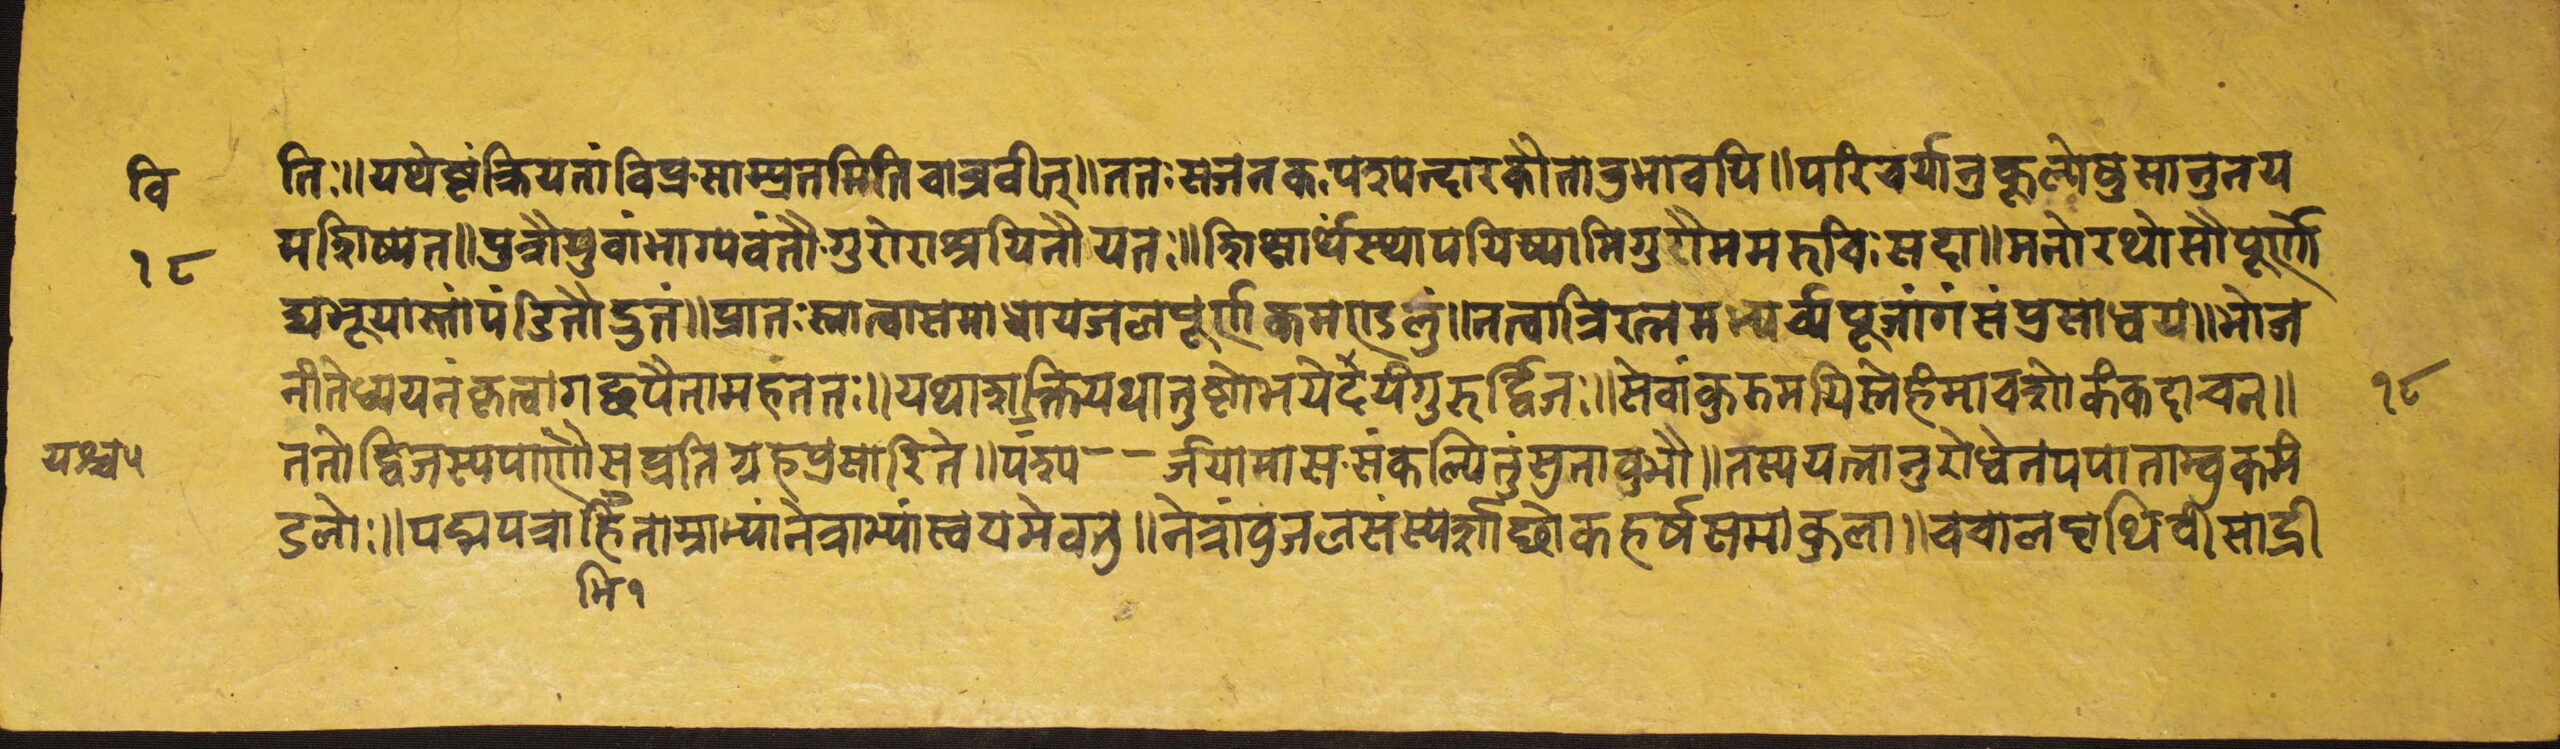 वि
१८
तिः॥यथेष्टंक्रियतांविप्रसाम्प्रतमितिचाब्रवीत्॥ततःसजनकःपश्यन्दारकौतावुभावपि॥परिचर्यानुकूलेषुसानुनय
मशिष्यत॥पुत्रौयुवांभाग्यवंतौगुरोराश्रयिनौयतः॥शिक्षार्थंस्थापयिष्यामिगुरौममरुचिःसदा॥मनोरथोसौपूर्णो
द्यभूयास्तांपंडितौद्रुतं॥प्रातःस्नात्वासमाधायजलपूर्णकमण्डलुं॥नत्वात्रिरत्नमभ्यर्च्यपूजांगंसंप्रसाधय॥भोज
नांतेध्ययनंकृत्वागच्छथैनामहंततः॥यथाशक्तियथातुष्टोभवेदेयंगुरुर्द्विजः॥सेवांकुरुमयिस्नेहंमाचशोकंकदाचन॥
१८
ततोद्विजस्यपाणौसप्रतिग्रहप्रसारिते॥पश्य--र्जयामाससंकल्पितुंसुतावुभौ॥तस्ययत्नानुरोधेनपपाताम्बुकमं
डलोः॥पद्मपत्राहिताम्राभ्यांनेत्राभ्यांस्वयमेवतु॥नेत्रांबुजलसंस्पर्शाच्छोकहर्षसमाकुला॥चचालपृथिवीसाद्री
मि१